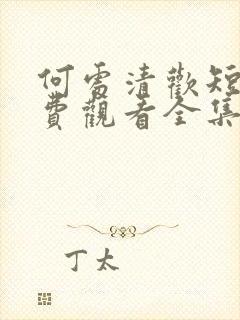 何處清歡短
費觀看全集
丁太